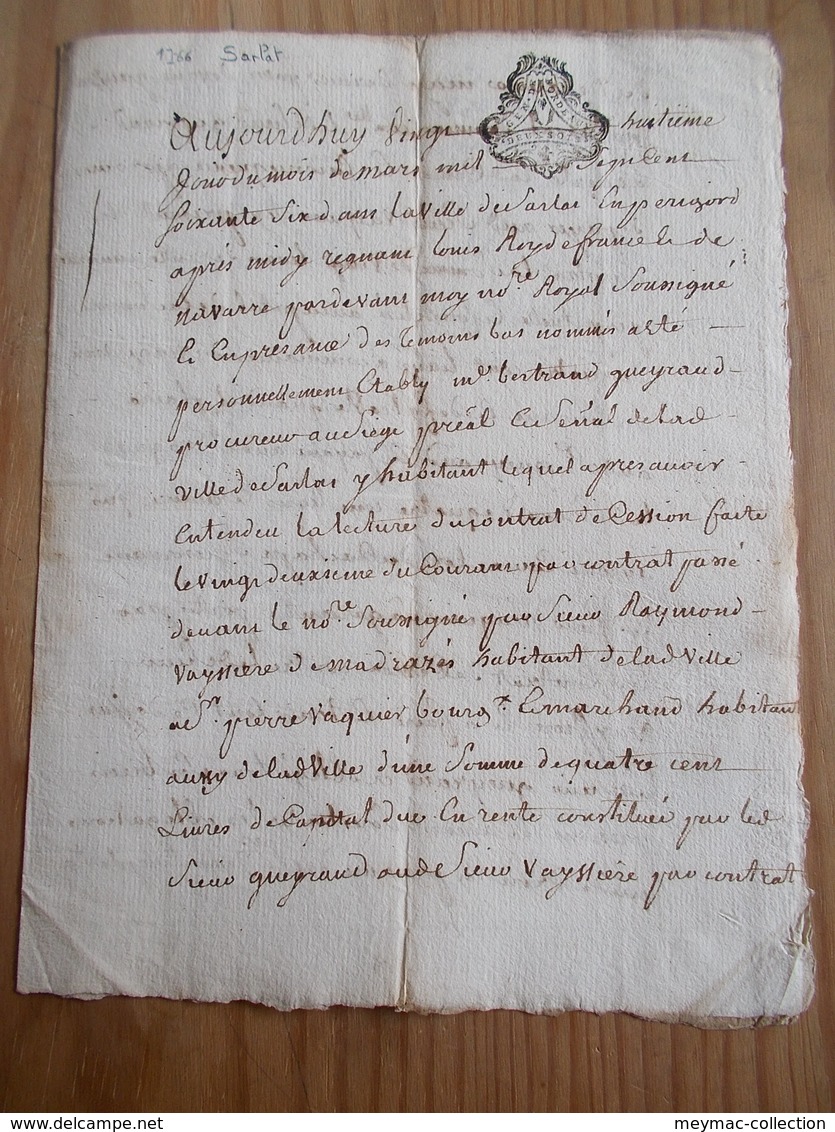 1766 Sarlat
GEN. DE BORDEAUX
DEUX SOLS
Aujourdhuy vingt huitième
Jour du mois de mars mil sept cent
soixante six dans la ville de Sarlat En perigord
après midy regnant Louis Roy de france & de
navarre pardevant moy no.re Royal Soussigné
Et En presance des temoins bas nommés a eté
personnellement Etably m.e bertrand gueyraud
procureur au Siége préal Et Sénal de lad
ville de Sarlat y habitant lequel apres avoir
Entendeu la lecture du contrat de Cession faite
le vingt deuxieme du Courant par contrat passé
devant le no.re Soussigné par Sieur Raymond
Vayssière de madrazés habitant de lad ville
a S.r pierre vaquier bourg.s Et marchand habitant
aussy de lad ville d'une Somme de quatre cent
Livres de Capital due En rente constituée par led
Sieur gueyraud aud Sieur Vayssière par contrat
meymac-collection